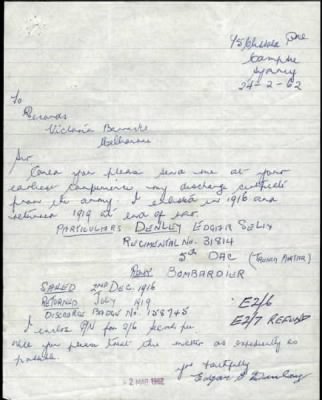 Ave
Campsie
Sydney
24-2-62
To
Records
Victoria Barracks
Melbourne
Sir
Could you please send me at your
earliest convenience my discharge certificate
from the army. I enlisted in 1916 and
returned 1919 at end of war.
PARTICULARS DENLEY EDGAR
REGIMENTAL No. 31814
5th DAC (TRENCH MORTAR)
RANK BOMBARDIER
SAILED 2ND DEC. 1916
RETURNED JULY 1919.
DISCHARGE BADGE No. 158745
E2/6
I enclose P/N for 2/6 fee.
E2/7 REFUND
Will you please treat the matter as expeditly as
possible.
2 MAR 1962
Yours faithfully
Edgar S Denley